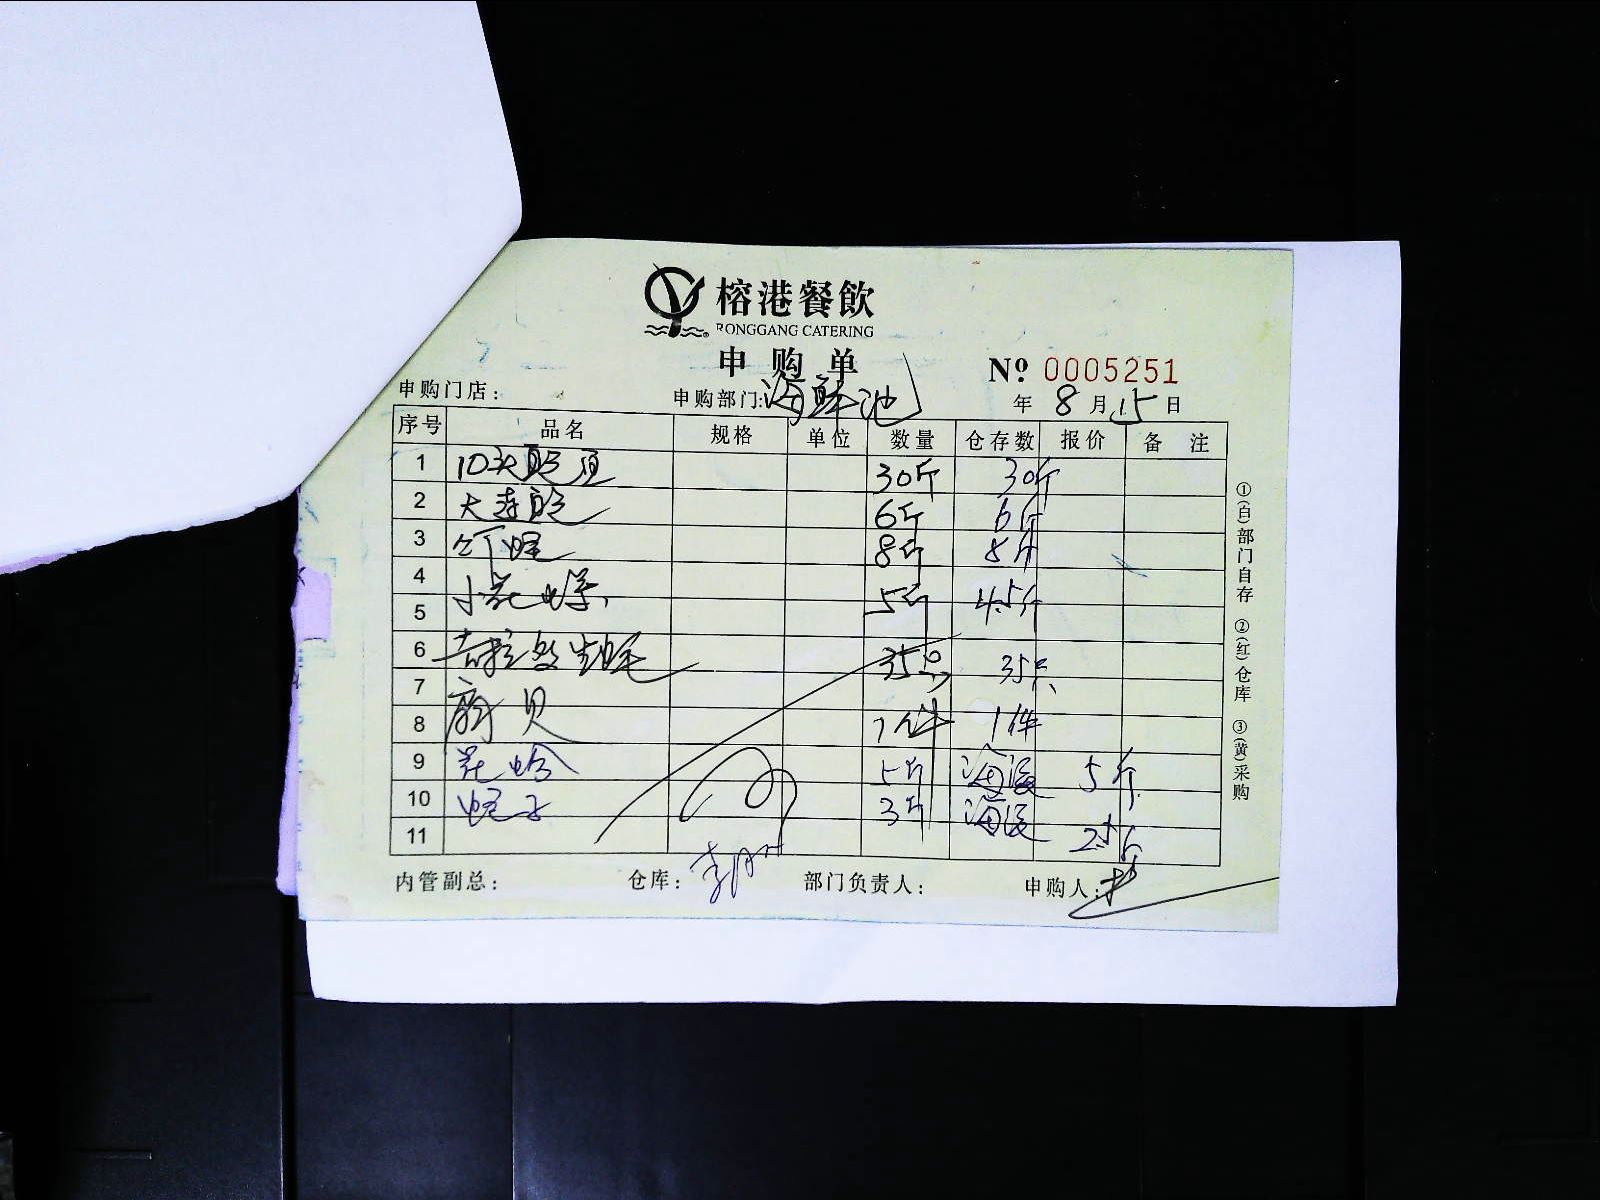 榕港餐飲
RONGGANG CATERING
申购单
№ 0005251
申购门店： 申购部门：海鲜池 年 8 月 15 日
序号 品名 规格 单位 数量 仓存数 报价 备注
1 10头鲍 30斤 30斤
2 大连鲍 6斤 6斤
3 8斤 8斤
4 小花螺 5斤 4.5斤
5
6 吉拉多生蚝 35只 35只
7 扇贝 1件 1件
8
9 花蛤 5斤 海鲜 5斤
10 蛏子 3斤 海鲜 2.5斤
11
内管副总： 仓库： 部门负责人： 申购人：
①(白)部门自存 ②(红)仓库 ③(黄)采购